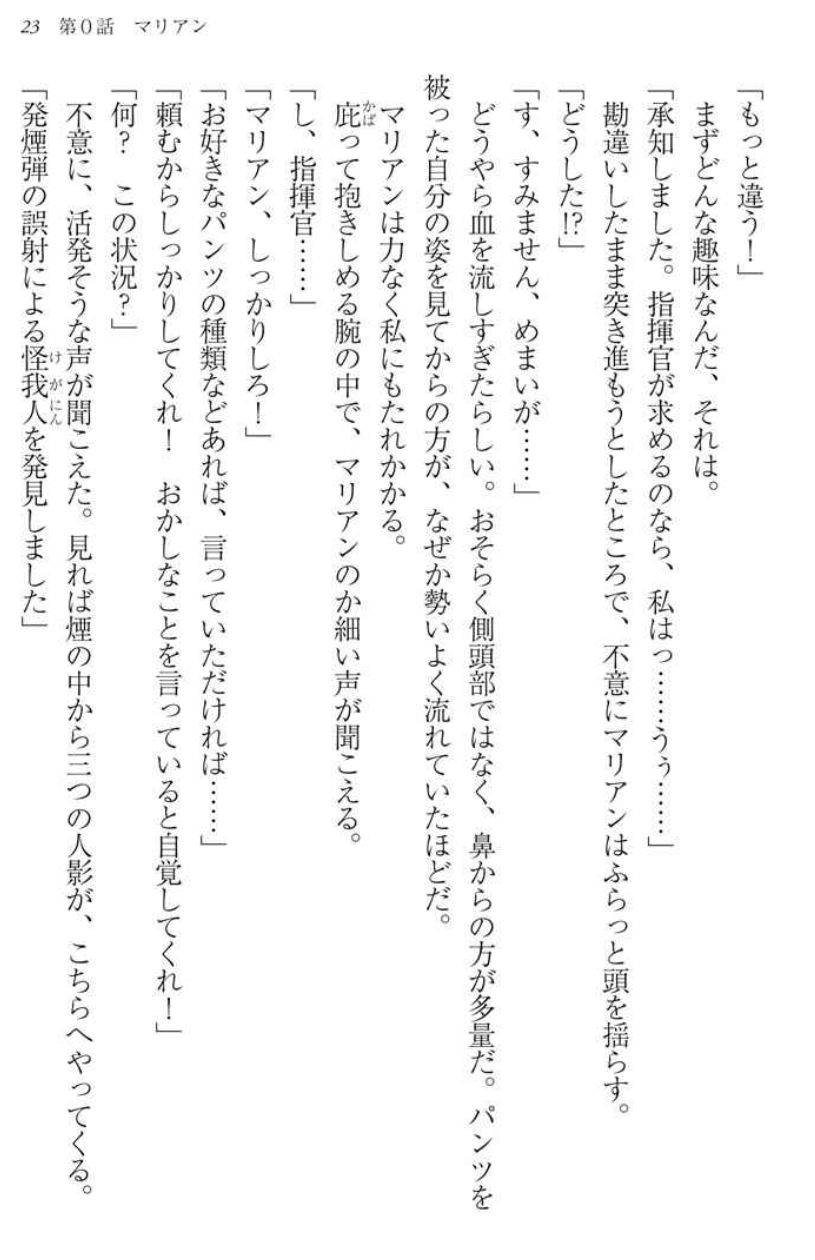 23　第0話　マリアン
「もっと違う！」
　まずどんな趣味なんだ、それは。
「承知しました。指揮官が求めるのなら、私はっ……うぅ……」
　勘違いしたまま突き進もうとしたところで、不意にマリアンはふらっと頭を揺らす。
「どうした!?」
「す、すみません、めまいが……」
　どうやら血を流しすぎたらしい。おそらく側頭部ではなく、鼻からの方が多量だ。パンツを
被った自分の姿を見てからの方が、なぜか勢いよく流れていたほどだ。
　マリアンは力なく私にもたれかかる。
　庇って抱きしめる腕の中で、マリアンのか細い声が聞こえる。
「し、指揮官……」
「マリアン、しっかりしろ！」
「お好きなパンツの種類などあれば、言っていただければ……」
「頼むからしっかりしてくれ！　おかしなことを言っていると自覚してくれ！」
「何？　この状況？」
　不意に、活発そうな声が聞こえた。見れば煙の中から三つの人影が、こちらへやってくる。
「発煙弾の誤射による怪我人を発見しました」